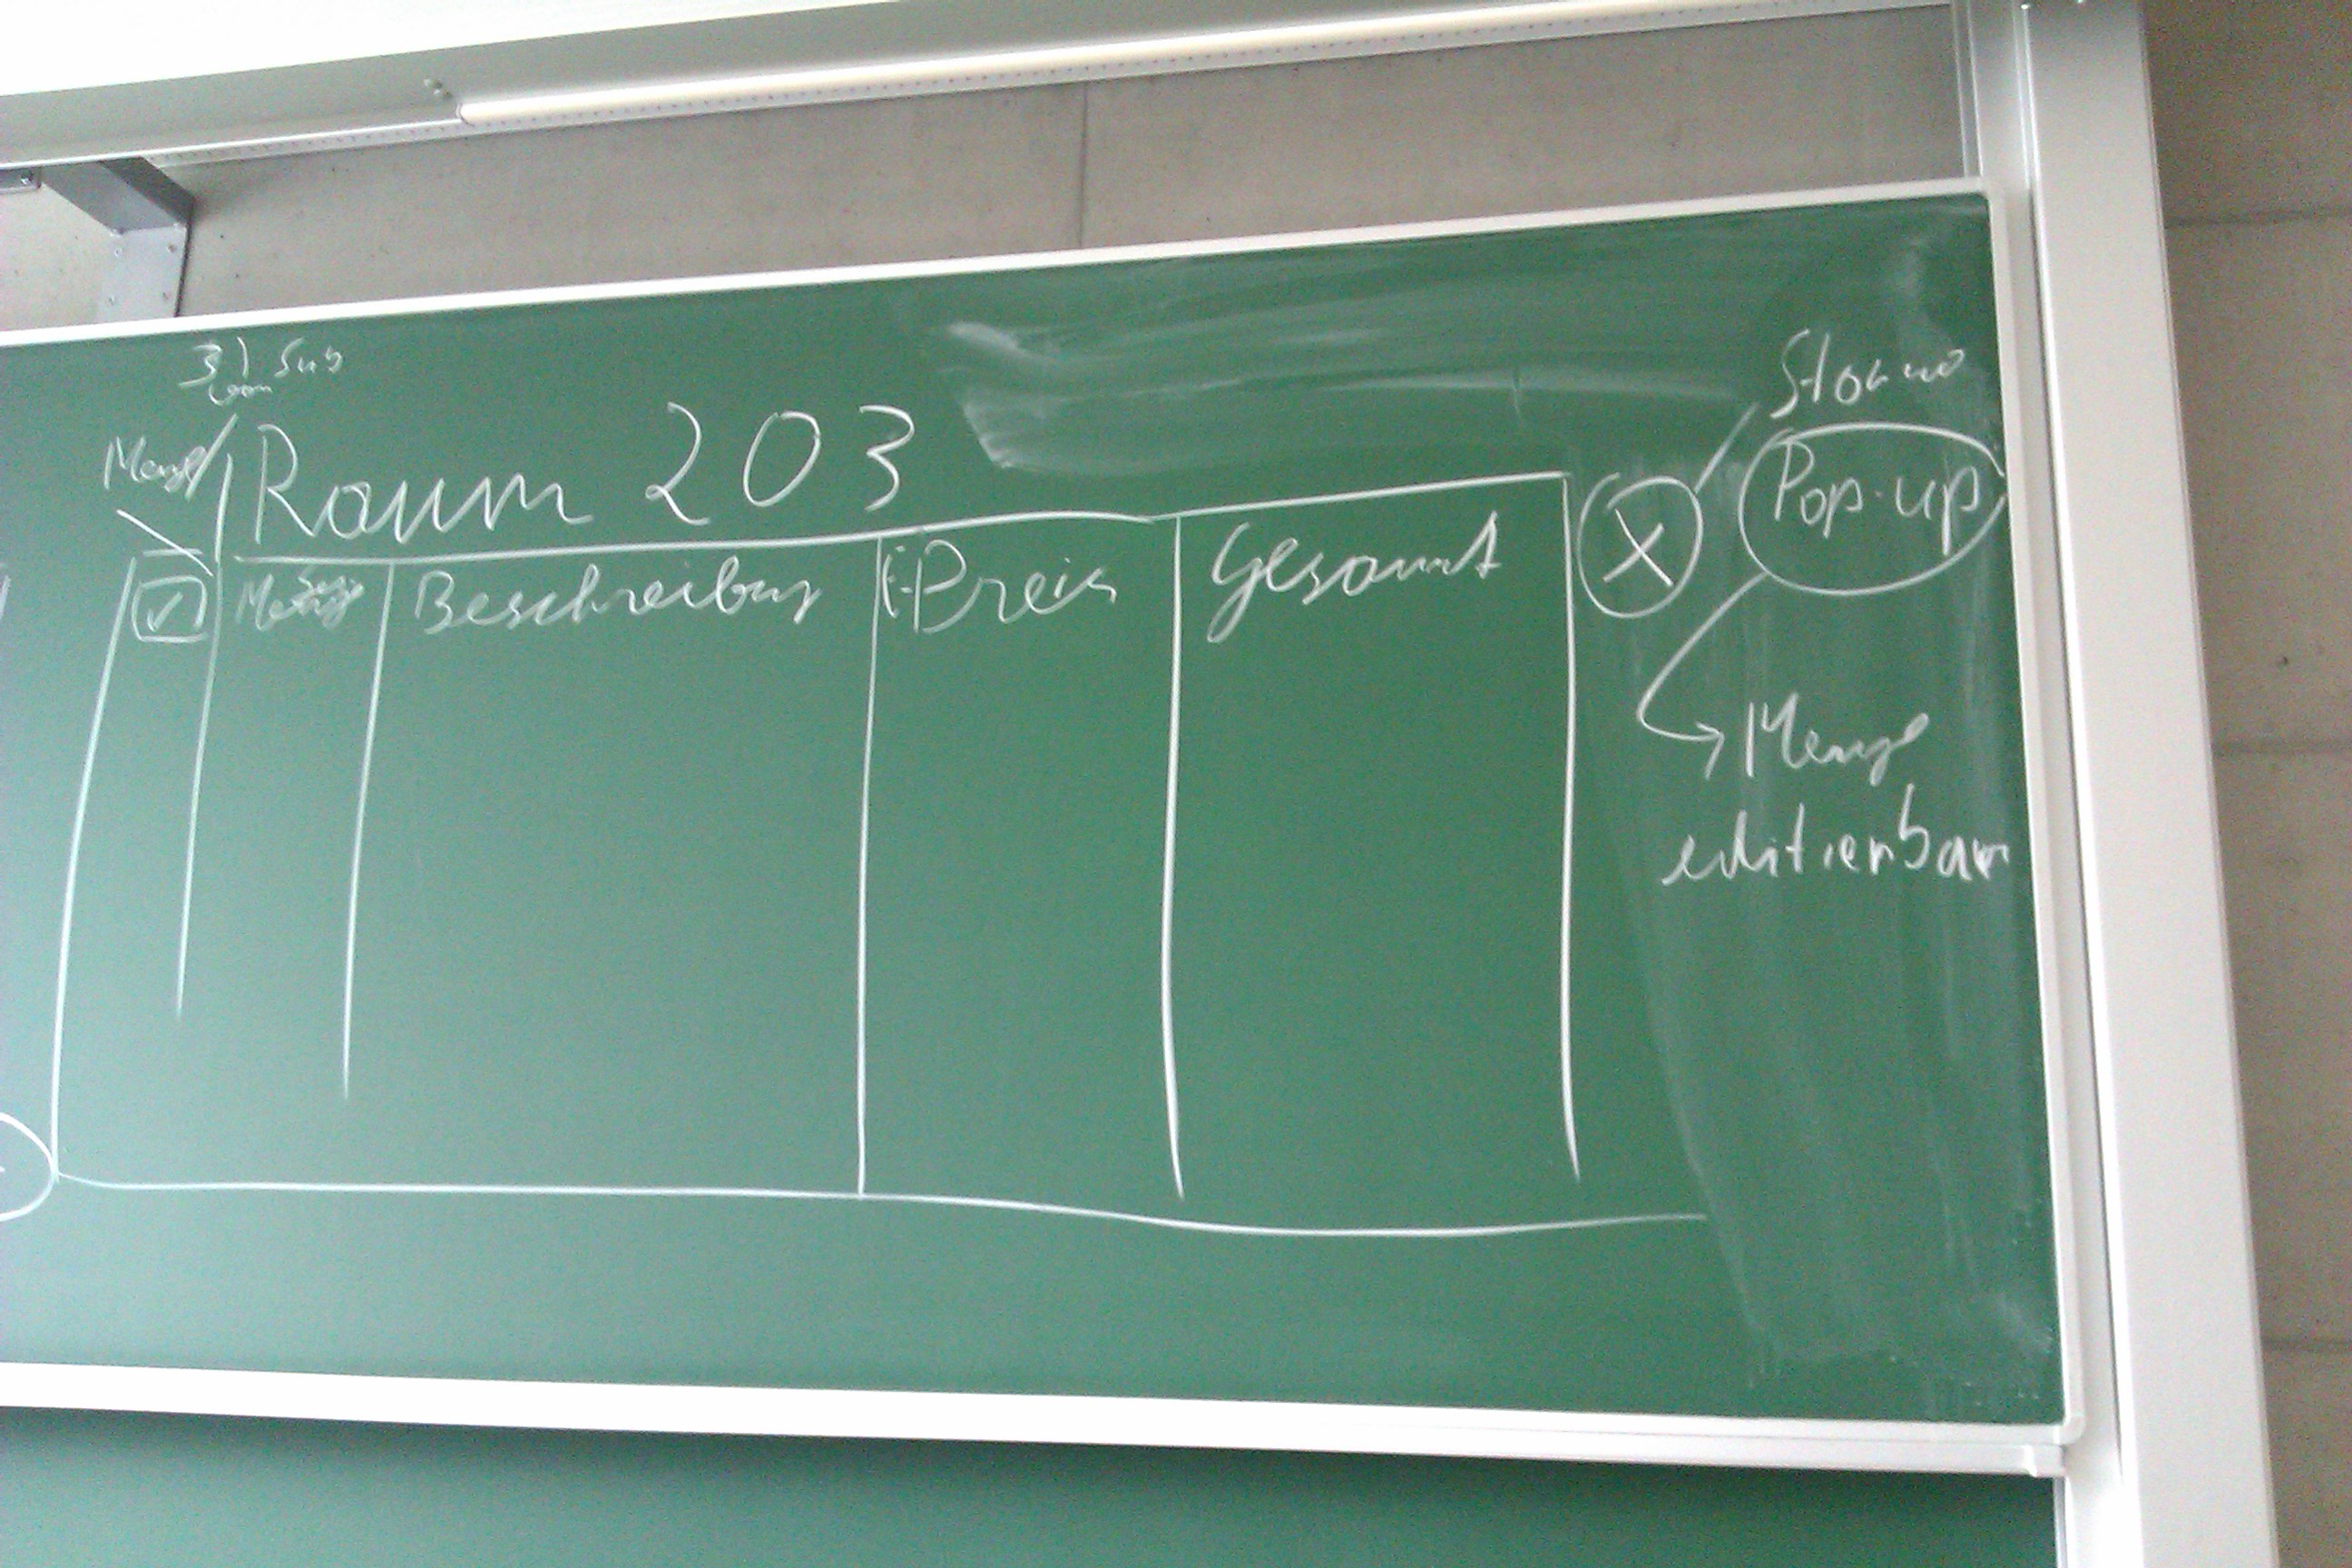 3) Sub
Raum 203
Menge Beschreibung E-Preis Gesamt
X
Storno
Pop-up
Menge
editierbar